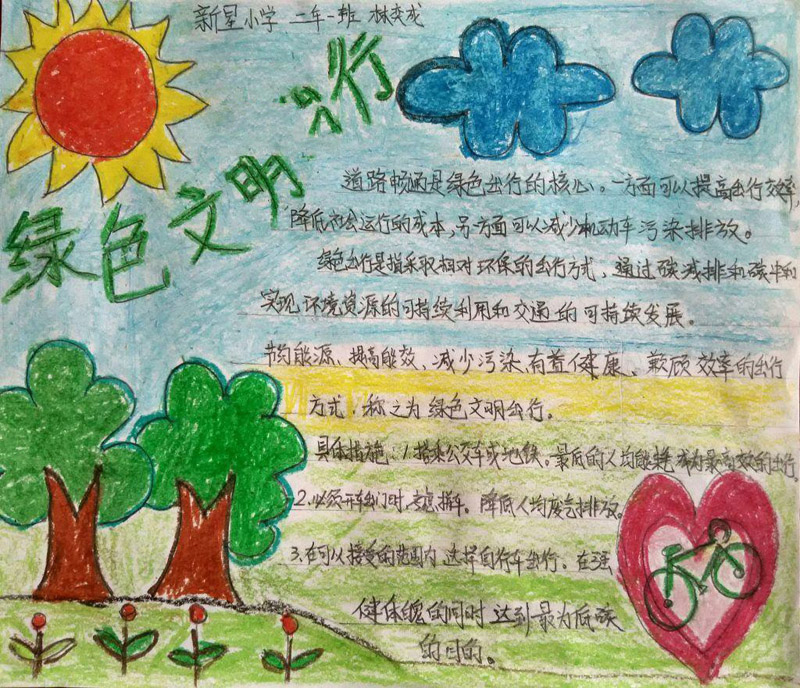 新星小学 二年一班 林奕龙
绿色文明出行
道路畅通是绿色出行的核心。一方面可以提高出行效率,
降低社会运行的成本,另方面可以减少机动车污染排放。
绿色出行是指采取相对环保的出行方式,通过碳减排和碳中和
实现环境资源的可持续利用和交通的可持续发展。
节约能源、提高能效、减少污染、有益健康、兼顾效率的出行
方式,称之为绿色文明出行。
具体措施:1.搭乘公交车或地铁。最低的人均能耗成为最高效的出行。
2.必须开车出门时,拼车。降低人均废气排放。
3.在可以接受的范围内选择自行车出行。在强
健体魄的同时达到最为低碳
的目的。